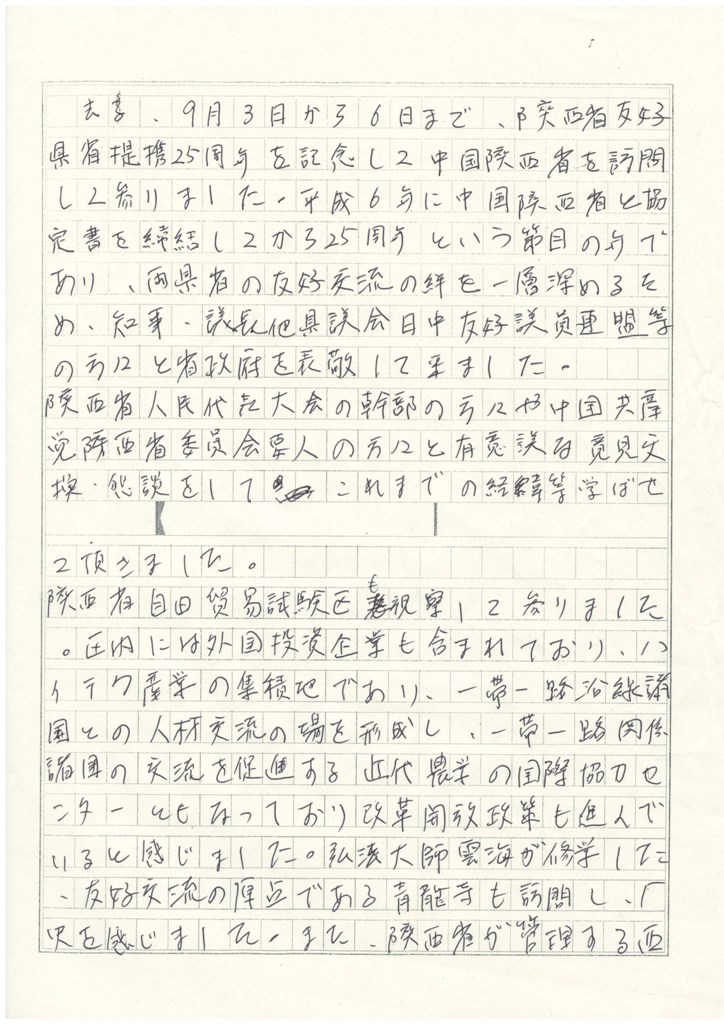 去季、9月3日から6日まで、陝西省友好
県省提携25周年を記念して中国陝西省を訪問
して参りました。平成6年に中国陝西省と協
定書を締結してから25周年という節目の年で
あり、両県省の友好交流の絆を一層深めるた
め、知事・議長他県議会日中友好議員連盟等
の方々と省政府を表敬して来ました。
陝西省人民代表大会の幹部の方々や中国共産
党陝西省委員会要人の方々と有意義な意見交
換・懇談をして これまでの経緯等学ばせ
て頂きました。
陝西省自由貿易試験区も視察して参りました
。区内には外国投資企業も含まれており、ハ
イテク産業の集積地であり、一帯一路沿線諸
国との人材交流の場を形成し、一帯一路関係
諸国の交流を促進する近代農業の国際協力セ
ンターともなっており改革開放政策も進んで
いると感じました。弘法大師空海が修学した
、友好交流の原点である青龍寺も訪問し、歴
史を感じました。また、陝西省が管理する西